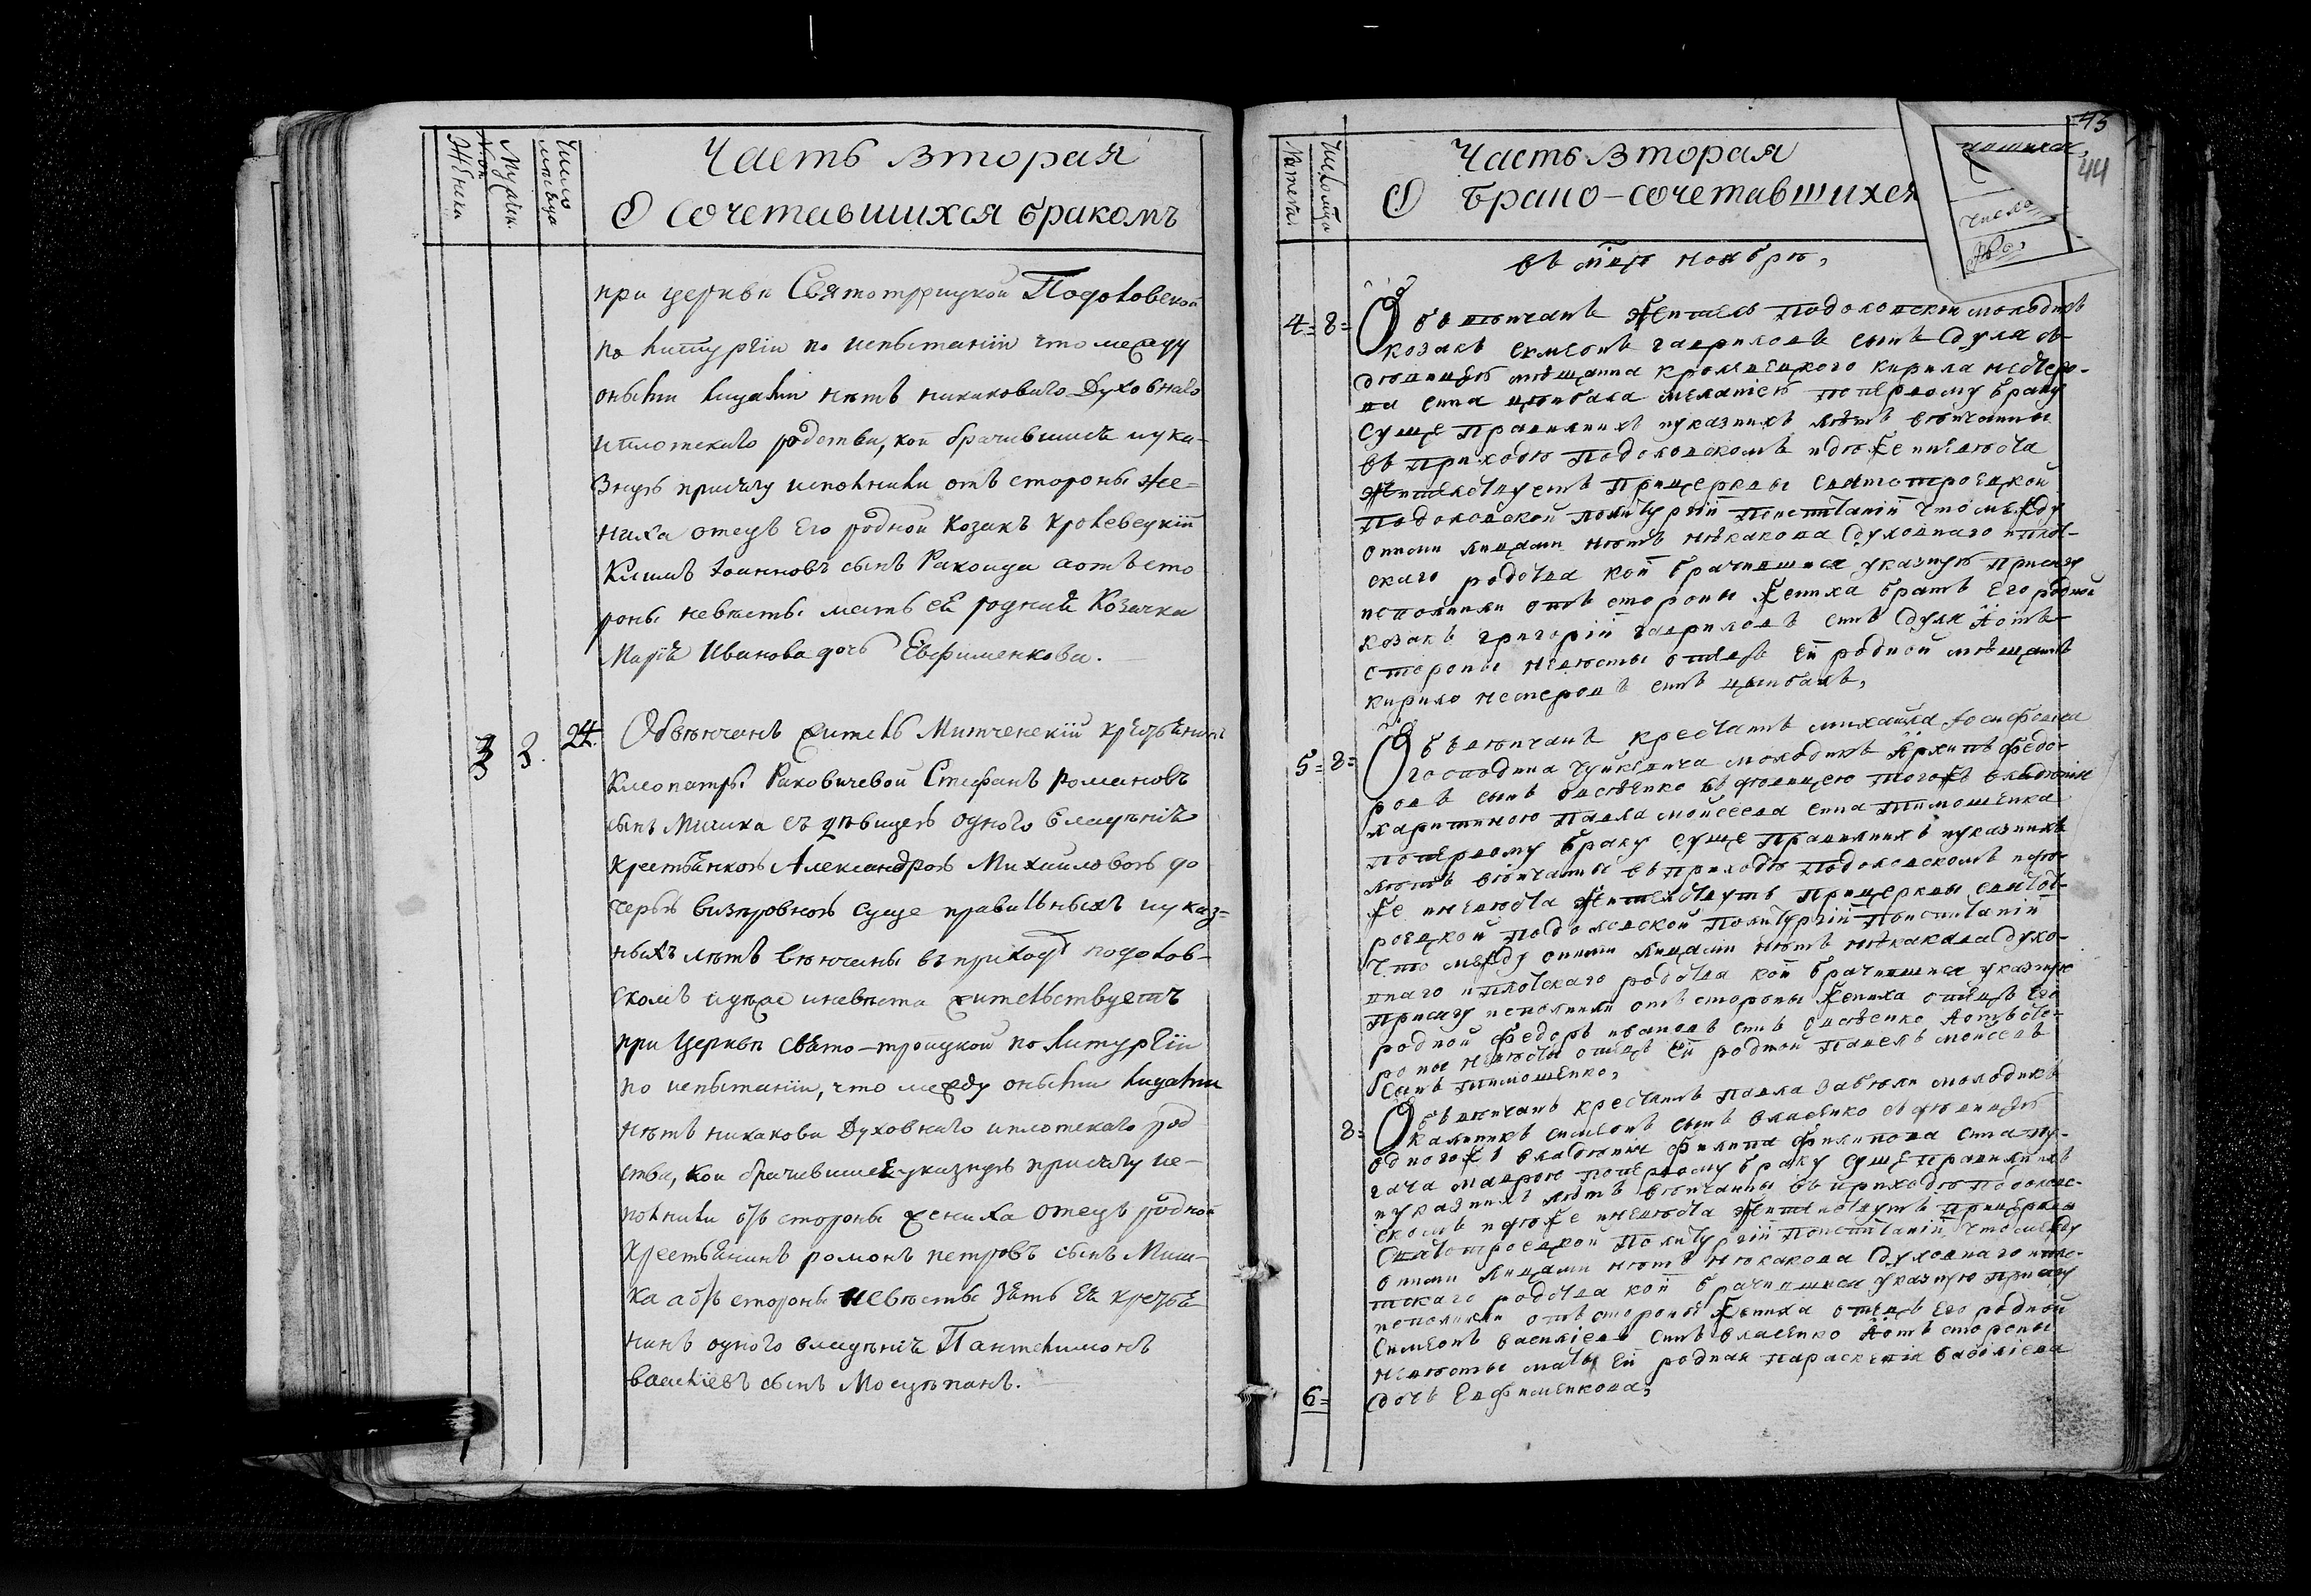 Часть вторая
О сочетавшихся бракомъ
Число мѣсяца
Мужеск.
Женска
при церкви Святотроицкой Подоловской
по литургіи по испытаніи что между
оными лицами нѣтъ никаковаго Духовнаго
и плотскаго родства, кои брачившися и ука-
зную присягу исполнили отъ стороны же-
ниха отецъ Его родной Козакъ Кролевецкій
Климъ Іоанновъ сынъ Ракоида а отъ сто
роны невѣсты мать ей родная Козачка
Марія Иванова дочь Евфименкова.
3 3. 24. Обвѣнчанъ житель Митченскій крестьянинъ
Клеопатры Раковичевой Стефанъ Романовъ
сынъ Мишка съ дѣвицею одного владѣнія
Крестьянкою Александрою Михайловою до
черью суще правильныхъ и указ-
ныхъ лѣтъ вѣнчаны въ приходѣ подолов-
скомъ идѣже и невѣста жительствуетъ
при Церкви Свято-троицкой по Литургіи
по испытаніи, что между оными лицами
нѣтъ никакова Духовнаго и плотскаго род
ства, кои брачившися указную присягу ис-
полнили отъ стороны жениха отецъ родной
Крестьянинъ ромонъ петровъ сынъ Миш-
ка а отъ стороны невѣсты зять Ея крестья
нинъ одного владѣнія Пантелимонъ
василіевъ сынъ Мосцѣпанъ.
Часть вторая
О брако-сочетавшихся
число
43
44
въ мцѣ ноябрѣ,
4= 8= Обвѣнчанъ житель подоловскій молодикъ
козакъ симеонъ гавриловъ сынъ дуля съ
дѣвицею мѣщанина кролевецкого кирила нестеро-
ва сина цимбала меланіею по первому браку
суще правилнихъ и указнихъ лѣтъ вѣнчанны
въ приходѣ подоловскомъ идѣже и невѣста
жителствуетъ при церквы святотроецкой
подоловской по литургіи по испитаніи что между
оними лицами нѣтъ нѣкакова духовнаго и плот-
скаго родства кои брачившися указную присягу
исполнили отъ стороны жениха братъ его родной
козакъ григорій гавриловъ синъ дуля а отъ
стороны невѣсты отецъ ей родной мѣщанинъ
кирило нестеровъ синъ цимбалъ,
5= 8= Обвѣнчанъ крестянинъ михайла іосифовича
господина чуйкевича молодикъ архипъ федо-
ровъ сынъ овсѣенко съ дѣвицею тогожъ владѣнія
харитиною павла мойсеева сина тимошенка
по первому браку суще правилнихъ и указнихъ
лѣтъ вѣнчаны въ приходѣ подоловскомъ идѣ-
же и невѣста жителствуетъ при церквы святот-
роецкой подоловской по литургіи по испитаніи
что между оними лицами нѣтъ нѣкакова духо-
внаго и плотскаго родства кои брачившися указную
присягу исполнили отъ стороны жениха отецъ его
родной федоръ ивановъ синъ овсѣенко а отъ сто-
роны невѣсты отецъ ей родной павелъ мойсеевъ
сынъ тимошенко,
8= Обвѣнчанъ крестянинъ павла забѣли молодикъ
калиникъ симеоновъ сынъ власенко съ дѣвицею
одногожъ владѣнія филипа филипова сина пу-
гача маврою по первому браку суще правилнихъ
и указнихъ лѣтъ вѣнчанны въ приходѣ подолов-
скомъ идѣже и невѣста жителствуетъ при церквы
святотроецкой по литургіи по испитаніи что между
оними лицами нѣтъ нѣкакова духовнаго и пло-
тскаго родства кои брачившися указную присягу
исполнили отъ стороны жениха отецъ его родной
симеонъ василіевъ синъ власенко а отъ стороны
невѣсты мать ей родная параскевія василіева
6= дочь евфименкова,